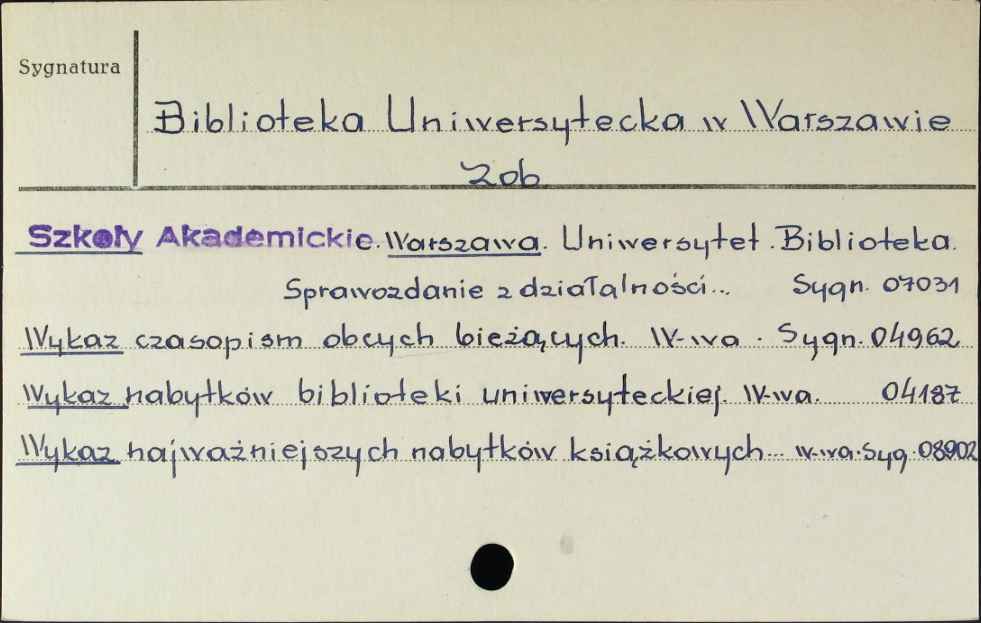 Sygnatura
Biblioteka Uniwersytecka w Warszawie
Zob
Szkoły Akademickie. Warszawa. Uniwersytet. Biblioteka.
Sprawozdanie z działalności... Sygn. 07031
Wykaz czasopism obcych bieżących. W-wa. Sygn. 04962
Wykaz nabytków biblioteki uniwersyteckiej. W-wa. 04187
Wykaz najważniejszych nabytków książkowych... W-wa. Syg. 08902